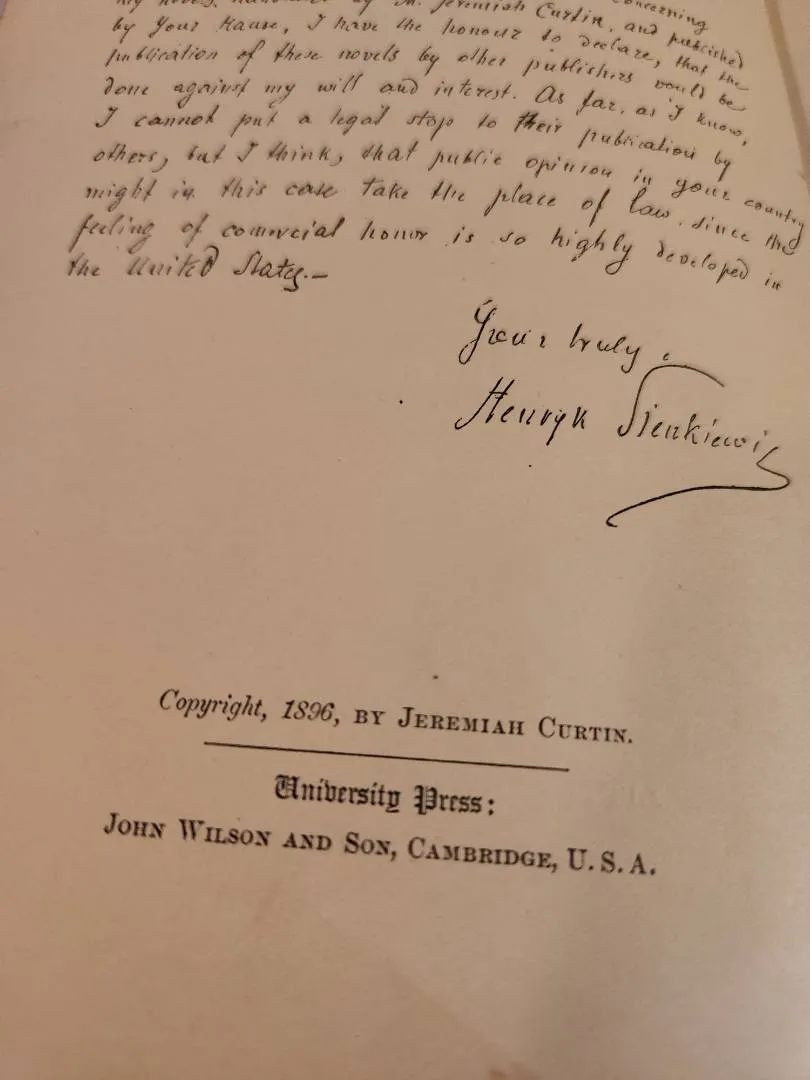 concerning
my novels, translated by M. Jeremiah Curtin, and published
by Your Hause, I have the honour to declare, that the
publication of these novels by other publishers would be
done against my will and interest. As far, as I know,
I cannot put a legal stop to their publication by
others, but I think, that public opinion in your country
might in this case take the place of law, since the
feeling of comercial honor is so highly developed in
the United States.—
Yours truly,
Henryk Sienkiewicz
Copyright, 1896, BY JEREMIAH CURTIN.
University Press:
JOHN WILSON AND SON, CAMBRIDGE, U.S.A.